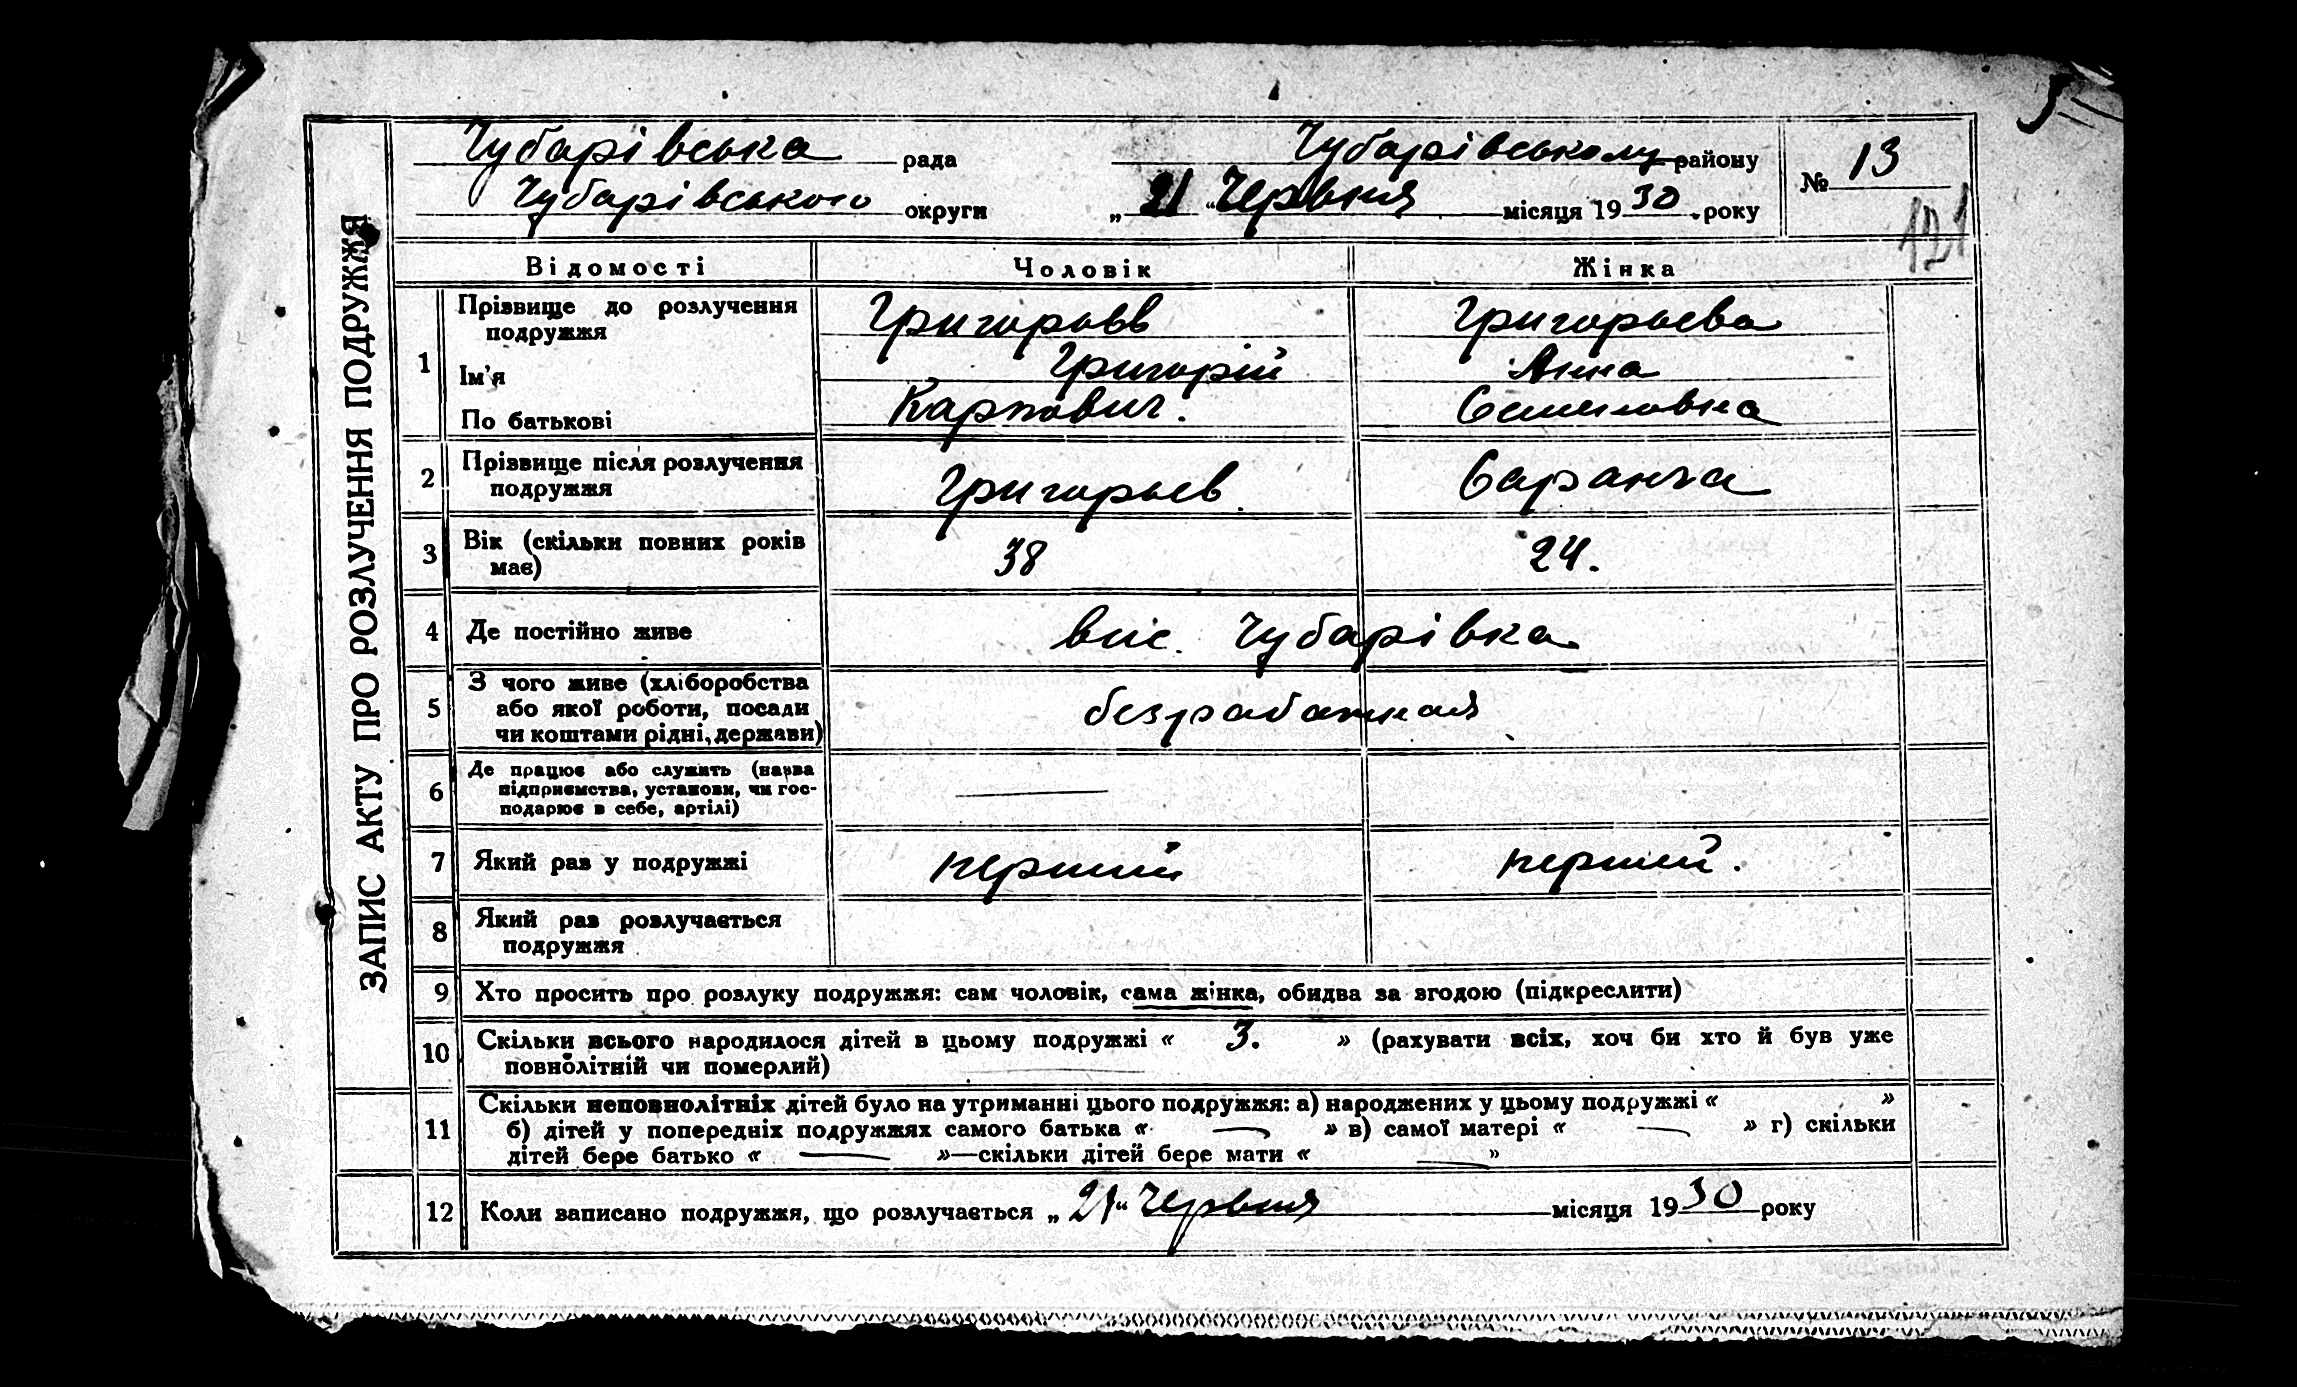 ЗАПИС АКТУ ПРО РОЗЛУЧЕННЯ ПОДРУЖЖЯ
Чубарівська рада Чубарівському району № 13
Чубарівського округи „ 21 “ Червня місяця 1930 року
121
Відомості Чоловік Жінка
1 Прізвище до розлучення Григорьев Григорьева
подружжя
Ім'я Григорій Анна
По батькові Карпович. Семеновна
2 Прізвище після розлучення Григорьев Саранча
подружжя
3 Вік (скільки повних років 38 24.
має)
4 Де постійно живе вис. Чубарівка
5 З чого живе (хліборобства
або якої роботи, посади безработная
чи коштами рідні, держави)
6 Де працює або служить (назва
підприємства, установи, чи гос-
подарює в себе, артілі) —
7 Який раз у подружжі перший перший.
8 Який раз розлучається
подружжя
9 Хто просить про розлуку подружжя: сам чоловік, сама жінка, обидва за згодою (підкреслити)
10 Скільки всього народилося дітей в цьому подружжі « 3. » (рахувати всіх, хоч би хто й був уже
повнолітній чи померлий)
11 Скільки неповнолітніх дітей було на утриманні цього подружжя: а) народжених у цьому подружжі « »
б) дітей у попередніх подружжях самого батька « — » в) самої матері « — » г) скільки
дітей бере батько « — »—скільки дітей бере мати « — »
12 Коли записано подружжя, що розлучається „ 21 “ Червня місяця 1930 року